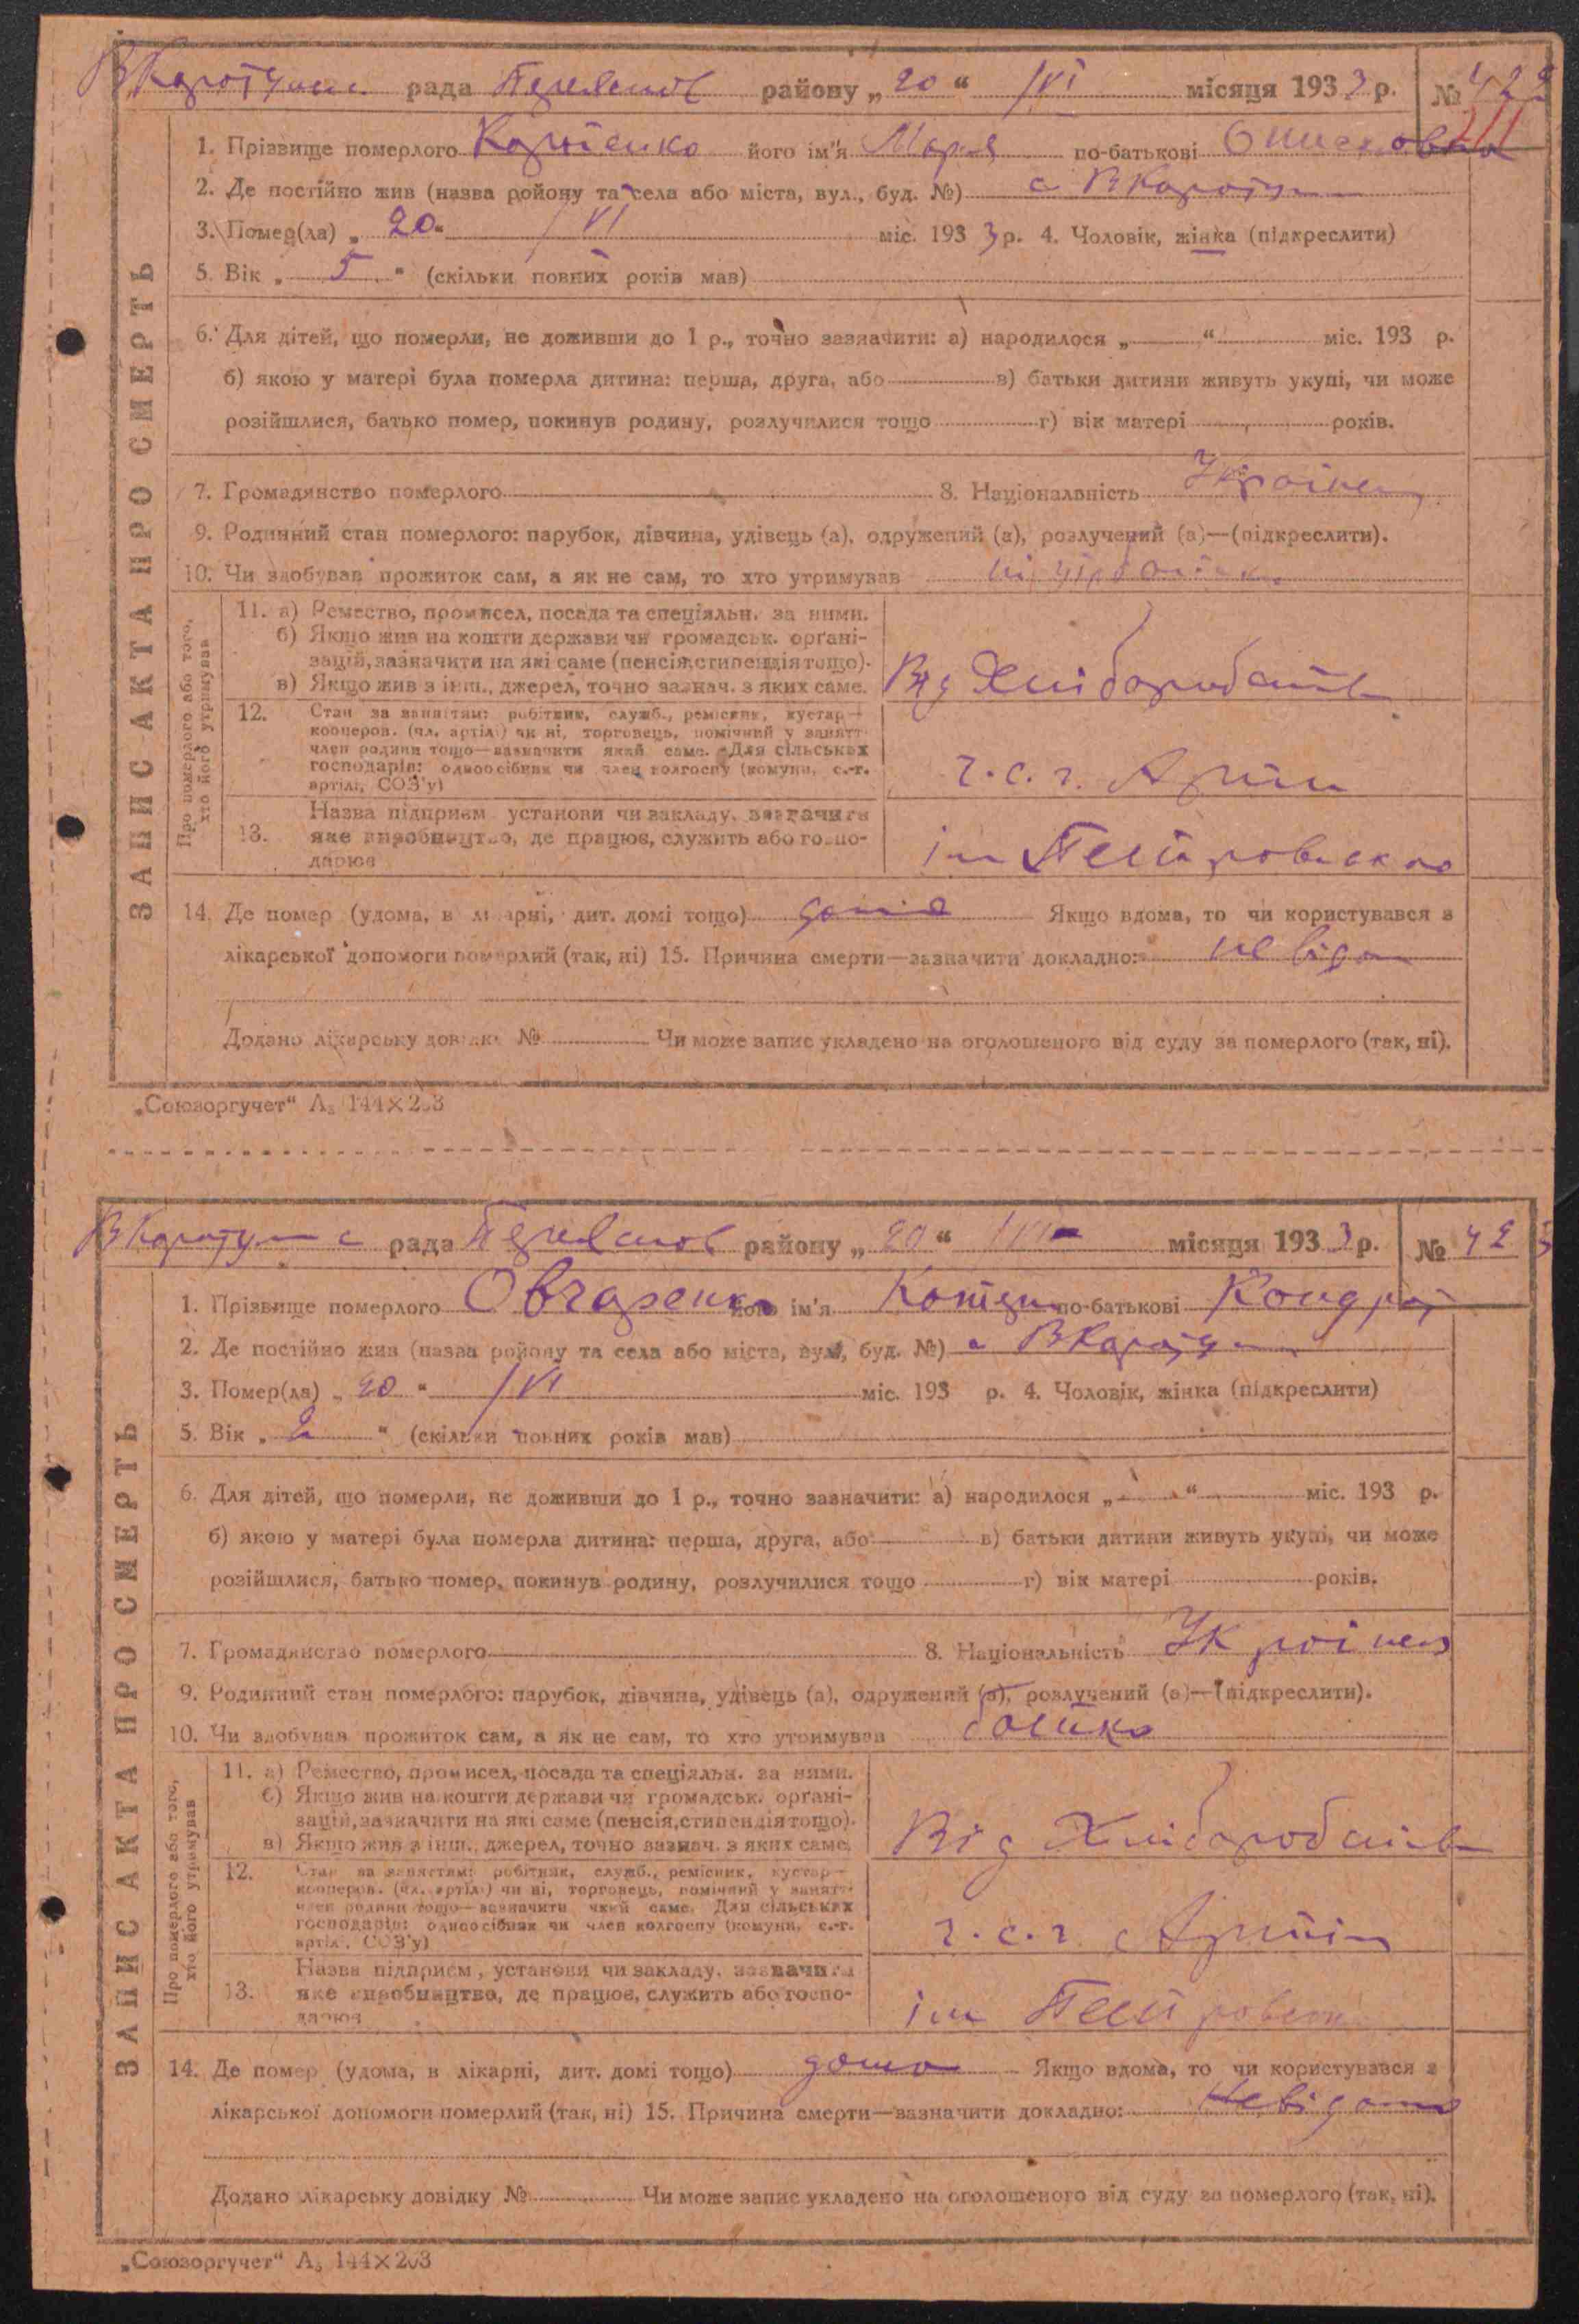 ВКаратул с рада Переяслов району „ 20 “ /VI місяця 1933 р. № 422
211
1. Прізвище померлого Корнієнко його ім'я Марія по-батькові
2. Де постійно жив (назва ройону та села або міста, вул., буд. №) с ВКаратул
3. Помер(ла) „ 20 “ /VI міс. 1933 р. 4. Чоловік, жінка (підкреслити)
5. Вік „ 5 “ (скільки повних років мав)
6. Для дітей, що померли, не доживши до 1 р., точно зазначити: а) народилося „ “ міс. 193 р.
б) якою у матері була померла дитина: перша, друга, або в) батьки дитини живуть укупі, чи може
розійшлися, батько помер, покинув родину, розлучилися тощо г) вік матері років.
7. Громадянство померлого 8. Національність Українец
9. Родинний стан померлого: парубок, дівчина, удівець (а), одружений (а), розлучений (а)—(підкреслити).
10. Чи здобував прожиток сам, а як не сам, то хто утримував
ЗАПИС АКТА ПРО СМЕРТЬ
Про померлого або того, хто його утримував
11. а) Ремество, промисел, посада та спеціяльн. за ними.
б) Якщо жив на кошти держави чи громадськ. органі-
зацій, зазначити на які саме (пенсія, стипендія тощо).
в) Якщо жив з інш., джерел, точно зазнач. з яких саме.
Від Хліборобств
12. Стан за заняттям: робітник, служб., ремісник, кустар—
кооперов. (чл. артілі) чи ні, торговець, помічний у занятт
член родини тощо—зазначити який саме. Для сільських
господарів: одноосібник чи член колгоспу (комуни, с.-г.
артілі, СОЗ'у)
ч.с.г. Артіл
13. Назва підприєм установи чи закладу, зазначити
яке виробництво, де працює, служить або госпо-
дарює
ім Петровського
14. Де помер (удома, в лікарні, дит. домі тощо) дома Якщо вдома, то чи користувався з
лікарської допомоги померлий (так, ні) 15. Причина смерти—зазначити докладно: невідом
Додано лікарську довідку № Чи може запис укладено на оголошеного від суду за померлого (так, ні).
„Союзоргучет“ А₅ 144×203
ВКаратул с рада Переяслов району „ 20 “ /VI місяця 1933 р. № 423
1. Прізвище померлого Овчаренко його ім'я Катер по-батькові Кондрат
2. Де постійно жив (назва ройону та села або міста, вул., буд. №) с ВКаратул
3. Помер(ла) „ 20 “ /VI міс. 193 р. 4. Чоловік, жінка (підкреслити)
5. Вік „ 2 “ (скільки повних років мав)
6. Для дітей, що померли, не доживши до 1 р., точно зазначити: а) народилося „ “ міс. 193 р.
б) якою у матері була померла дитина: перша, друга, або в) батьки дитини живуть укупі, чи може
розійшлися, батько помер, покинув родину, розлучилися тощо г) вік матері років.
7. Громадянство померлого 8. Національність Українец
9. Родинний стан померлого: парубок, дівчина, удівець (а), одружений (а), розлучений (а)—(підкреслити).
10. Чи здобував прожиток сам, а як не сам, то хто утримував батько
ЗАПИС АКТА ПРО СМЕРТЬ
Про померлого або того, хто його утримував
11. а) Ремество, промисел, посада та спеціяльн. за ними.
б) Якщо жив на кошти держави чи громадськ. органі-
зацій, зазначити на які саме (пенсія, стипендія тощо).
в) Якщо жив з інш., джерел, точно зазнач. з яких саме.
Від Хліборобств
12. Стан за заняттям: робітник, служб., ремісник, кустар—
кооперов. (чл. артілі) чи ні, торговець, помічний у занятт
член родини тощо—зазначити який саме. Для сільських
господарів: одноосібник чи член колгоспу (комуни, с.-г.
артілі, СОЗ'у)
ч.с.г. Артіл
13. Назва підприєм, установи чи закладу, зазначити
яке виробництво, де працює, служить або госпо-
дарює
ім Петровськ
14. Де помер (удома, в лікарні, дит. домі тощо) дома Якщо вдома, то чи користувався з
лікарської допомоги померлий (так, ні) 15. Причина смерти—зазначити докладно: Невідомо
Додано лікарську довідку № Чи може запис укладено на оголошеного від суду за померлого (так, ні).
„Союзоргучет“ А₅ 144×203